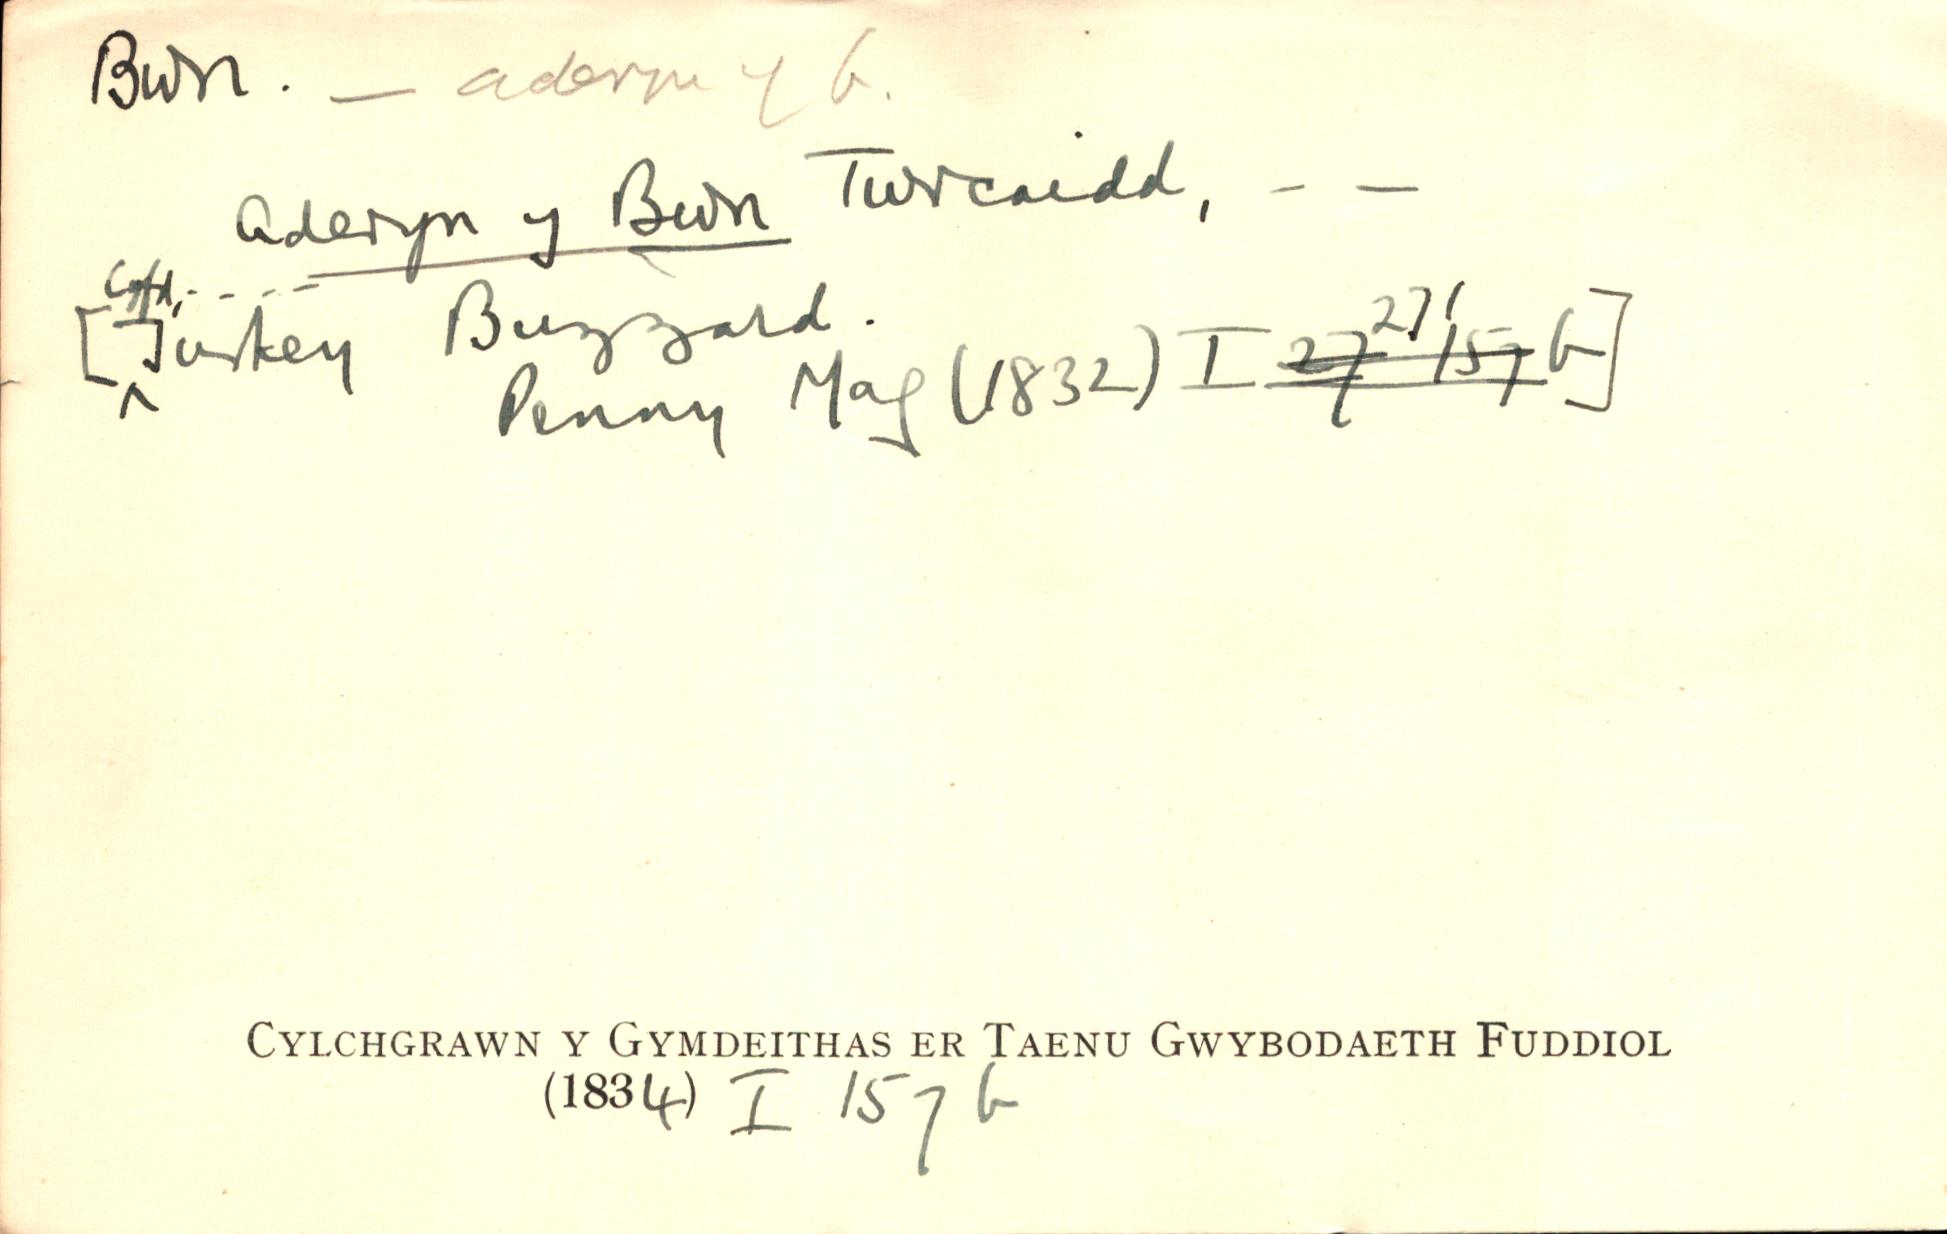 Bwn. — aderyn y b.
Aderyn y Bwn Twrcaidd, – –
Cyfd, - - - -
[Turkey Buzzard.
Penny Mag (1832) I 27 157 271 b]
CYLCHGRAWN Y GYMDEITHAS ER TAENU GWYBODAETH FUDDIOL
(1834) I 157 b